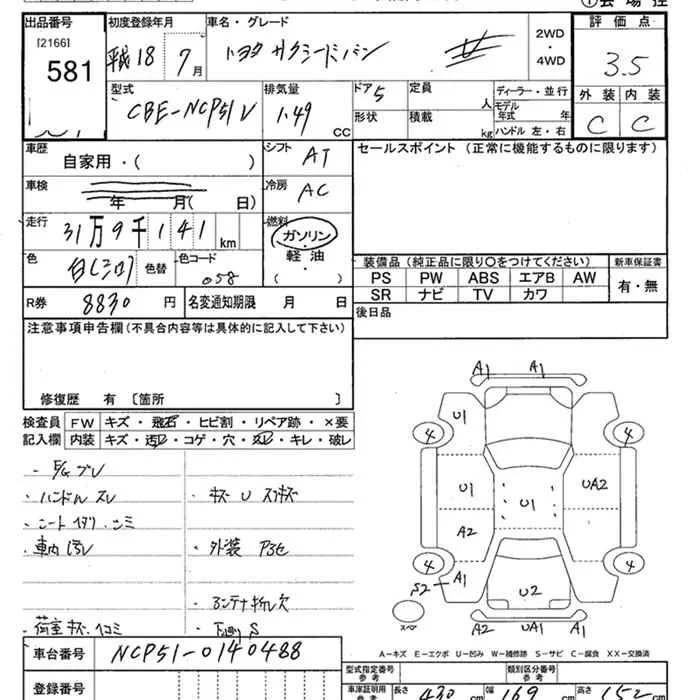 出品番号 初度登録年月 車名・グレード 2WD・4WD 評価点
[2166] 581 平成18 7月 3.5
型式 CBE-NCP51V 排気量 1.49 CC ドア 5 定員 人 ディーラー・並行
形状 積載 kg モデル年式 年 ハンドル 左・右
外装 内装
C C
車歴 自家用・( ) シフト AT セールスポイント (正常に機能するものに限ります)
車検 年 月( 日) 冷房 AC
走行 31万9千141km 燃料 ガソリン・軽油 ( )
色 白(シロ) 色替 色コード 058
装備品 (純正品に限り○をつけてください) 新車保証書
PS PW ABS エアB AW 有・無
SR ナビ TV カワ
R券 8830円 名変通知期限 月 日 後日品
注意事項申告欄(不具合内容等は具体的に記入して下さい)
修復歴 有 [箇所 ]
検査員 FW キズ・飛石・ヒビ割・リペア跡・×要
記入欄 内装 キズ・汚レ・コゲ・穴・スレ・キレ・破レ
・ハンドル スレ
・車内 汚レ
・外装
・下廻り S
A1 A1
U1
4 4
U1 U1 UA2
A2
4 4
S2 A1 U2
スペア
A2 UA1 A2
A-キズ E-エクボ U-凹み W-補修跡 S-サビ C-腐食 XX-交換済
車台番号 NCP51-0140488
型式指定番号 参考 類別区分番号 参考
登録番号 車庫証明用 参考 長さ 430 cm 幅 169 cm 高さ 152 cm